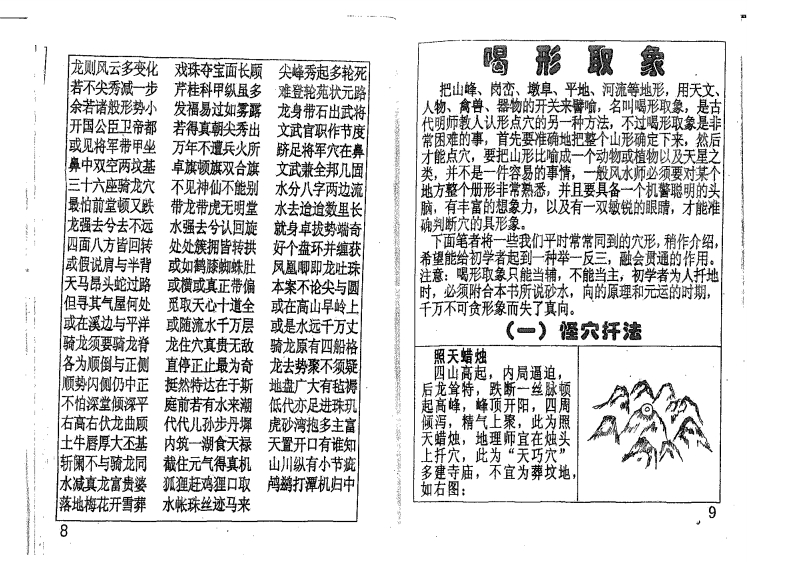 龙则风云多变化　戏珠夺宝面长顾　尖峰秀起多轮死
若不尖秀减一步　芹桂科甲纵虽多　难登轮苑状元路
余若诸般形势小　发福易过如雾露　龙身带石出武将
开国公臣卫帝都　若得真朝尖秀出　文武官职作节度
或见将军带甲坐　万年不遭兵火所　跻足将军穴在鼻
鼻中双空两坟基　卓旗顿旗双合旗　文武兼全邦几固
三十六座骑龙穴　不见神仙不能别　水分八字两边流
最怕前堂顿又跌　带龙带虎无明堂　水去迨迨数里长
龙强去兮去不远　水强去兮认回旋　就身卓拔势端奇
四面八方皆回转　处处簇拥皆转拱　好个盘环并缠获
或假说肩与半背　或如鹤膝蜘蛛肚　凤凰卿即龙吐珠
天马昂头蛇过路　或横或真正带偏　本案不论尖与圆
但寻其气屋何处　觅取天心十道全　或在高山早岭上
或在溪边与平洋　或随流水千万层　或是水远千万丈
骑龙须要骑龙脊　龙住穴真贵无敌　骑龙原有四船格
各为顺倒与正侧　直停正止最为奇　龙去势聚不须疑
顺势闪侧仍中正　挺然特达在于斯　地盘广大有毡褥
不怕深堂倾深平　庭前若有水来潮　低代亦足进珠玑
右高右伏龙曲顾　代代儿孙步丹墀　虎砂湾抱多主富
土牛唇厚大丕基　内筑一湖食天禄　天置开口有谁知
斩阑不与骑龙同　截住元气得真机　山川纵有小节疵
水减真龙富贵婆　狐狸赶鸡狸口取　鸬鹚打潭机归中
落地梅花开雪葬　水帐珠丝迹马来
8
喝形取象
把山峰、岗峦、墩阜、平地、河流等地形，用天文、
人物、禽兽、器物的开关来譬喻，名叫喝形取象，是古
代明师教人认形点穴的另一种方法，不过喝形取象是非
常困难的事，首先要准确地把整个山形确定下来，然后
才能点穴，要把山形比喻成一个动物或植物以及天星之
类，并不是一件容易的事情，一般风水师必须要对某个
地方整个册形非常熟悉，并且要具备一个机警聪明的头
脑，有丰富的想象力，以及有一双敏锐的眼睛，才能准
确判断穴的具形象。
下面笔者将一些我们平时常常同到的穴形，稍作介绍，
希望能给初学者起到一种举一反三，融会贯通的作用。
注意：喝形取象只能当辅，不能当主，初学者为人扦地
时，必须附合本书所说砂水，向的原理和元运的时期，
千万不可贪形象而失了真向。
（一）怪穴扦法
照天蜡烛
四山高起，内局逼迫，
后龙耸特，跌断一丝脉顿
起高峰，峰顶开阳，四周
倾泻，精气上聚，此为照
天蜡烛，地理师宜在烛头
上扦穴，此为“天巧穴”
多建寺庙，不宜为葬坟地，
如右图：
9